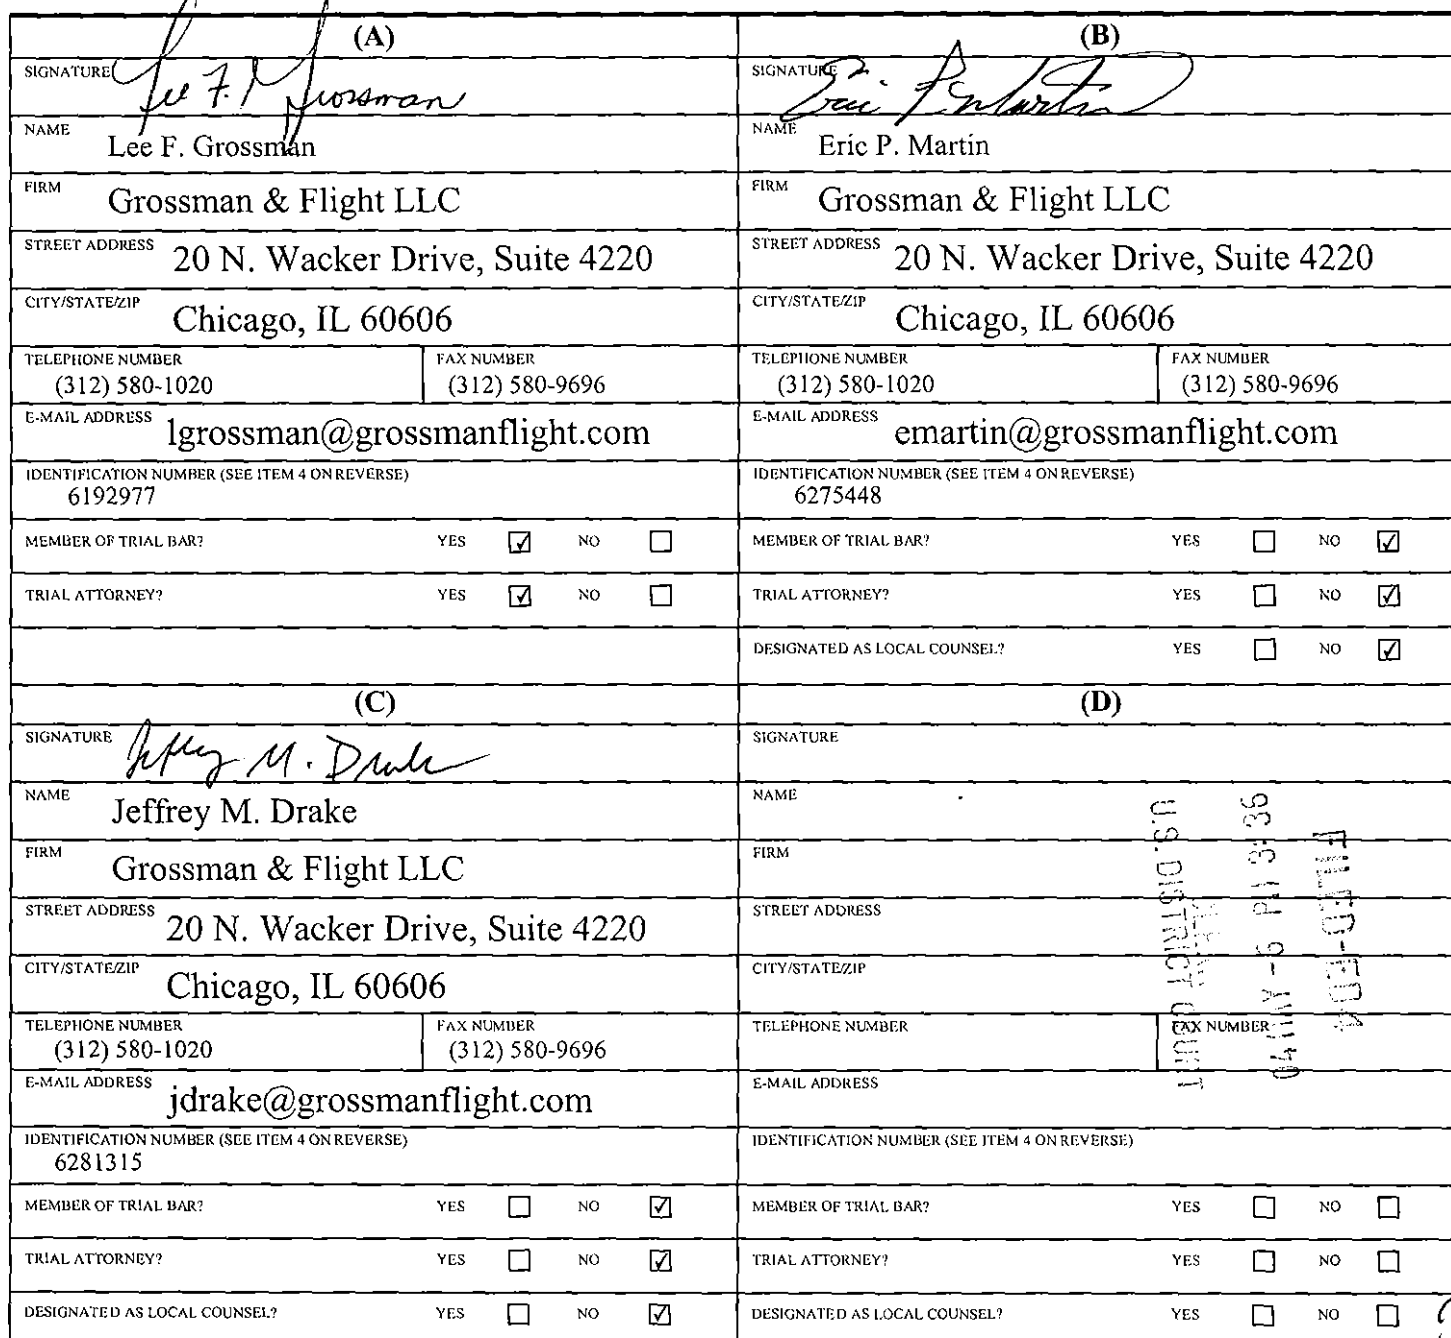 (A)
SIGNATURE Lee F. Grossman
NAME Lee F. Grossman
FIRM Grossman & Flight LLC
STREET ADDRESS 20 N. Wacker Drive, Suite 4220
CITY/STATE/ZIP Chicago, IL 60606
TELEPHONE NUMBER FAX NUMBER
(312) 580-1020 (312) 580-9696
E-MAIL ADDRESS lgrossman@grossmanflight.com
IDENTIFICATION NUMBER (SEE ITEM 4 ON REVERSE)
6192977
MEMBER OF TRIAL BAR? YES ☑ NO ☐
TRIAL ATTORNEY? YES ☑ NO ☐
(B)
SIGNATURE Eric P. Martin
NAME Eric P. Martin
FIRM Grossman & Flight LLC
STREET ADDRESS 20 N. Wacker Drive, Suite 4220
CITY/STATE/ZIP Chicago, IL 60606
TELEPHONE NUMBER FAX NUMBER
(312) 580-1020 (312) 580-9696
E-MAIL ADDRESS emartin@grossmanflight.com
IDENTIFICATION NUMBER (SEE ITEM 4 ON REVERSE)
6275448
MEMBER OF TRIAL BAR? YES ☐ NO ☑
TRIAL ATTORNEY? YES ☐ NO ☑
DESIGNATED AS LOCAL COUNSEL? YES ☐ NO ☑
(C)
SIGNATURE Jeffrey M. Drake
NAME Jeffrey M. Drake
FIRM Grossman & Flight LLC
STREET ADDRESS 20 N. Wacker Drive, Suite 4220
CITY/STATE/ZIP Chicago, IL 60606
TELEPHONE NUMBER FAX NUMBER
(312) 580-1020 (312) 580-9696
E-MAIL ADDRESS jdrake@grossmanflight.com
IDENTIFICATION NUMBER (SEE ITEM 4 ON REVERSE)
6281315
MEMBER OF TRIAL BAR? YES ☐ NO ☑
TRIAL ATTORNEY? YES ☐ NO ☑
DESIGNATED AS LOCAL COUNSEL? YES ☐ NO ☑
(D)
SIGNATURE
NAME
FIRM
STREET ADDRESS
CITY/STATE/ZIP
TELEPHONE NUMBER FAX NUMBER
E-MAIL ADDRESS
IDENTIFICATION NUMBER (SEE ITEM 4 ON REVERSE)
MEMBER OF TRIAL BAR? YES ☐ NO ☐
TRIAL ATTORNEY? YES ☐ NO ☐
DESIGNATED AS LOCAL COUNSEL? YES ☐ NO ☐
FILED-ED4
04 MAY -6 PM 3:36
U.S. DISTRICT COURT